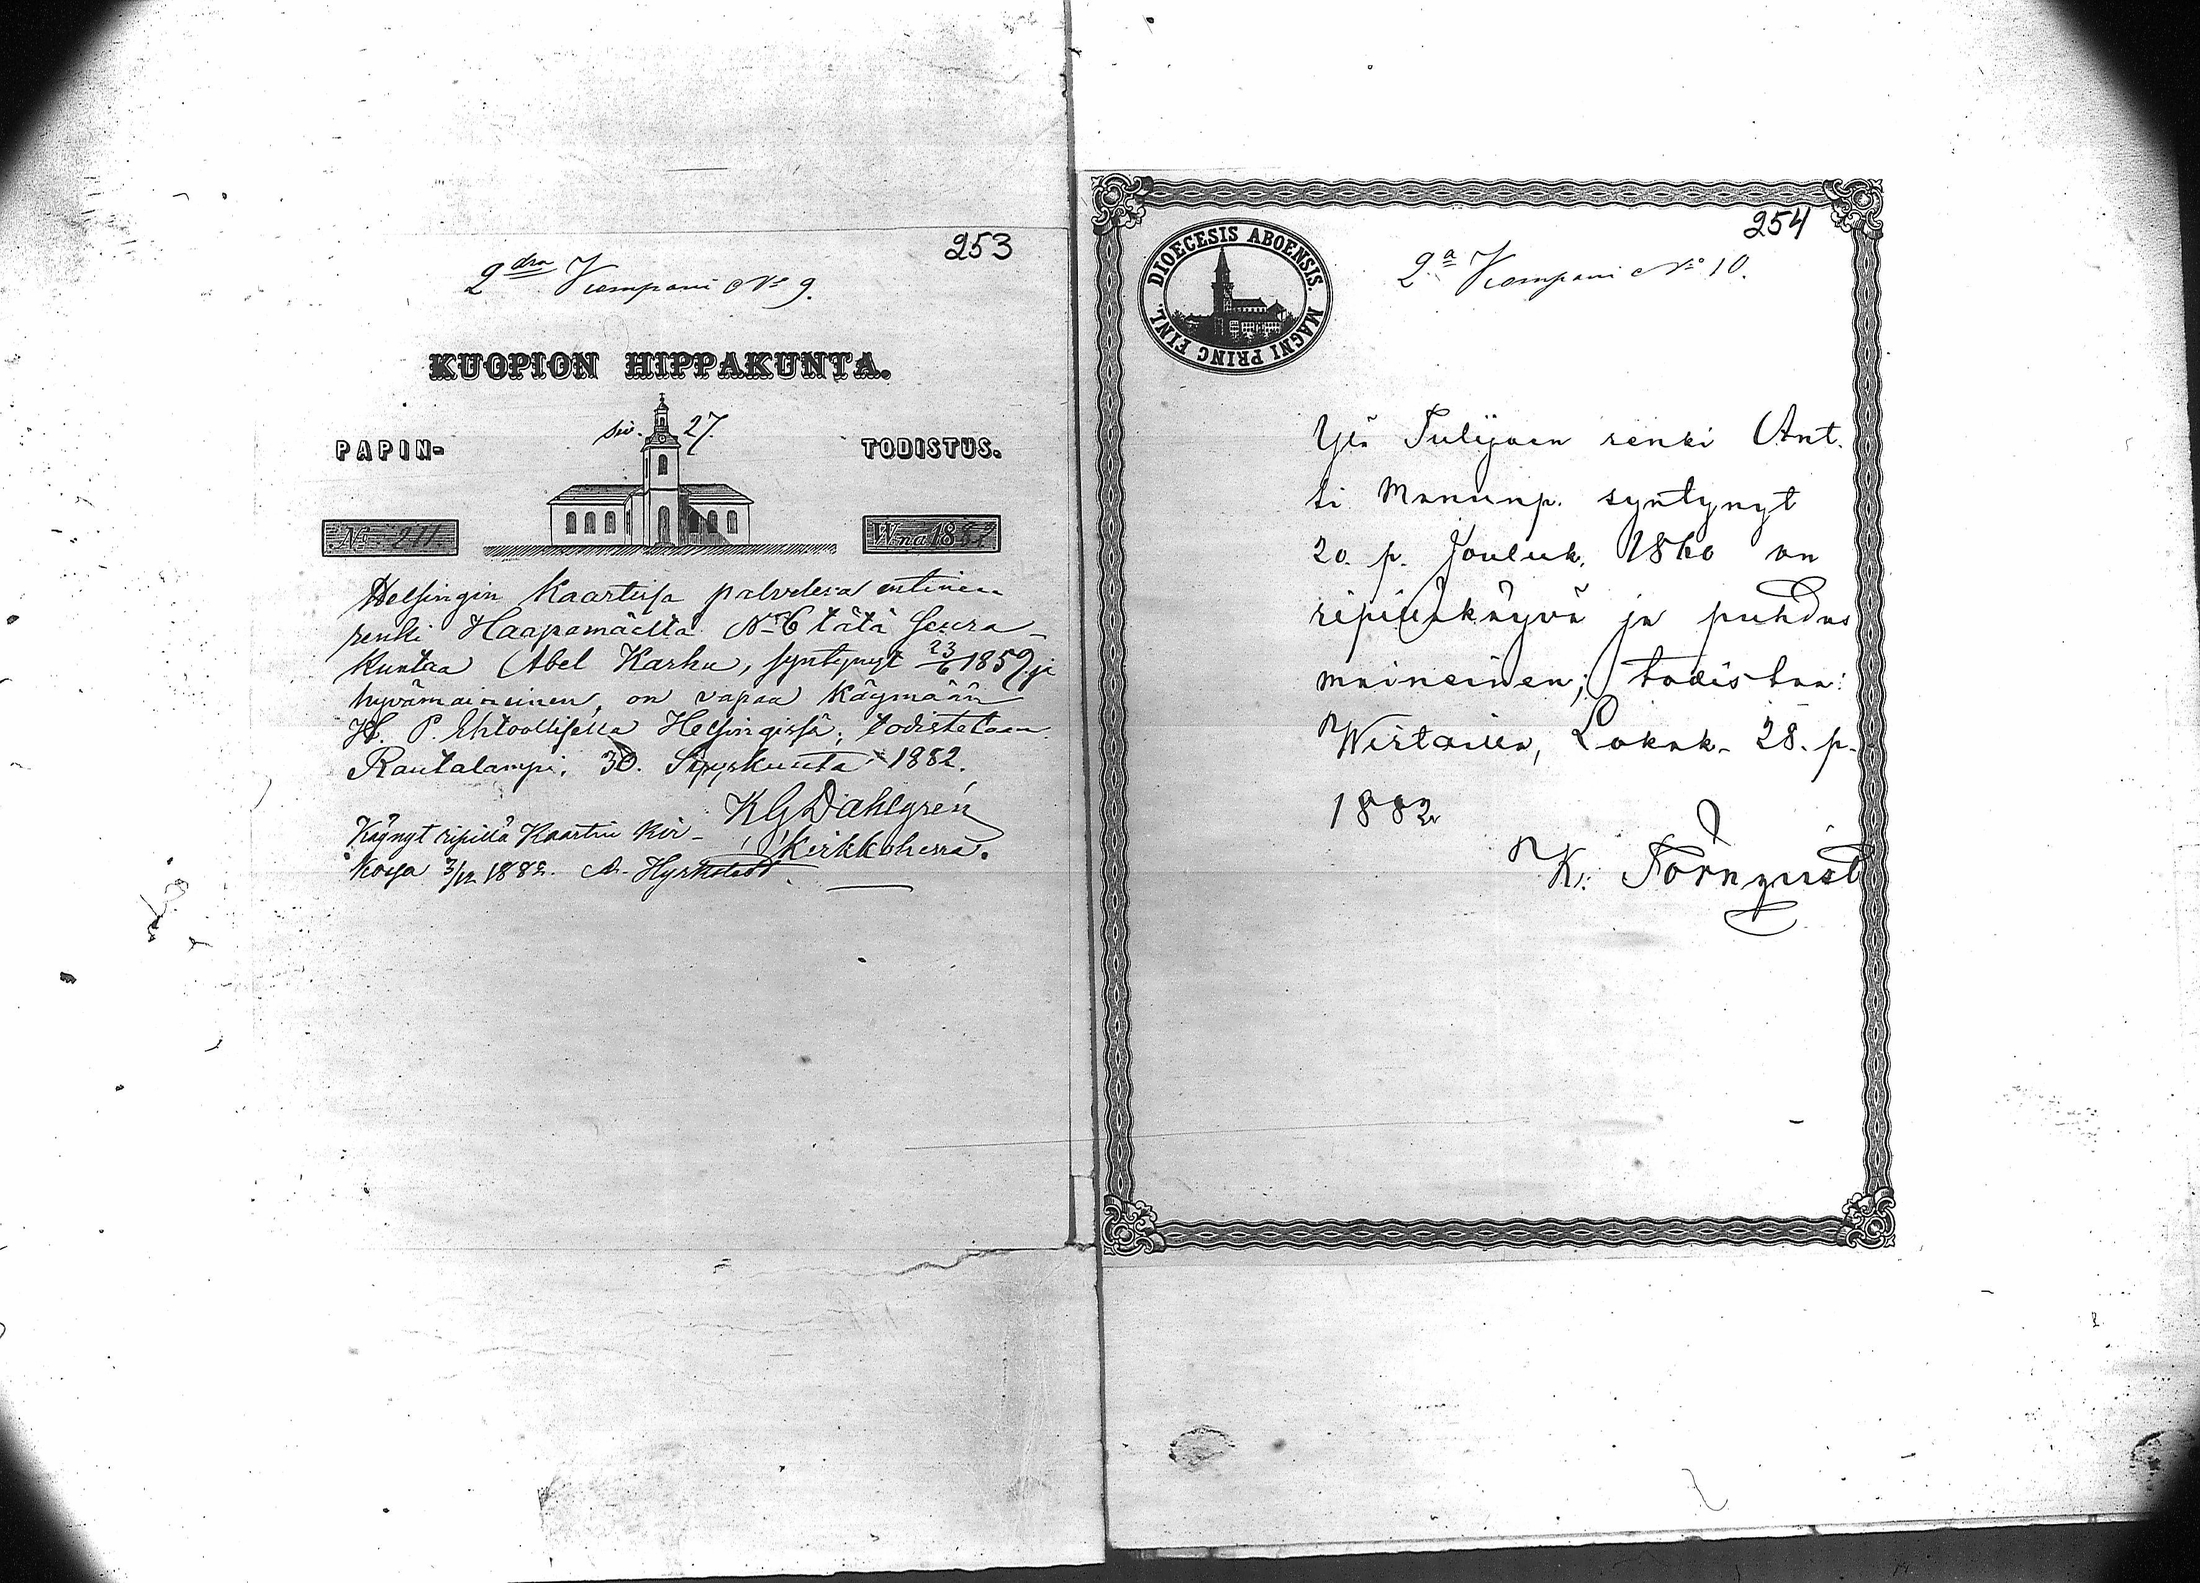 253
2dra Kompani No 9.
KUOPION HIPPAKUNTA.
siv. 27.
PAPIN-
TODISTUS.
No 211.
W.na 1882
Helsingin Kaartissa palveleva entinen
renki Haapamäeltä No 6 tätä Seura-
kuntaa Abel Karhu, syntynyt 23/6 1859, ja
hyvämaineinen, on vapaa käymään
H. P. Ehtoollisella Helsingissä; todistetaan.
Rautalampi, 30. Syyskuuta 1882.
K G Dahlgrén
Kirkkoherra.
Käynyt ripillä Kaartin Kir-
kossa 3/12 1882. A. Hyrkstedt
254
2a Kompani No 10.
DIOECESIS ABOENSIS. MAGNI PRINC FINL.
Ylä Tulijoen renki Ant.
ti Manunp. syntynyt
20. p. Jouluk. 1860 on
ripilläkäypä ja puhdas
maineinen; todistaa:
Wirtailla, Lokak. 28. p.
1882
K. Törnqvist